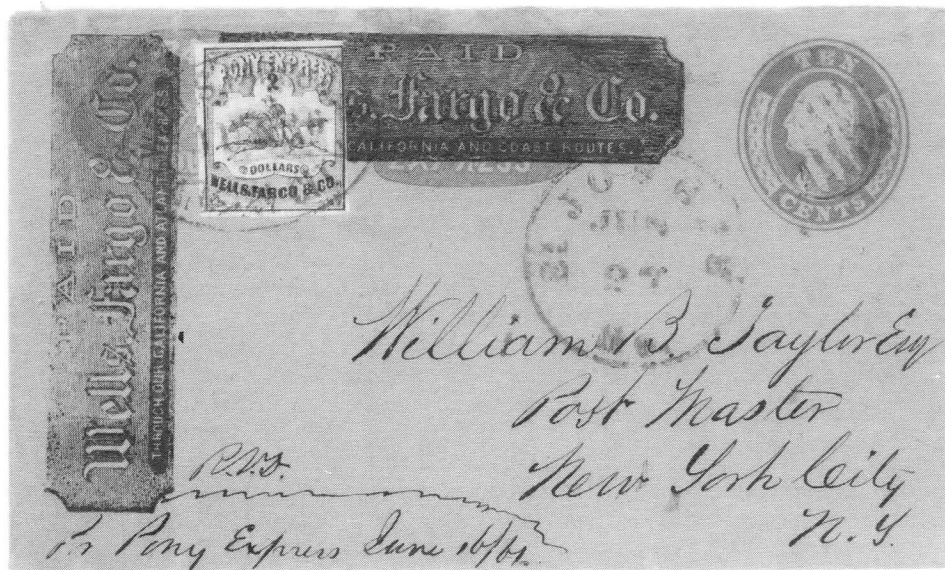 PAID
Wells, Fargo & Co.
THROUGH OUR CALIFORNIA AND ATLANTIC EXPRESS.
PONY EXPRESS
2
DOLLARS
WELLS, FARGO & CO.
PAID
s, Fargo & Co.
CALIFORNIA AND COAST ROUTES.
TEN
CENTS
William B. Taylor Esq
Post Master
New York City
N. Y.
Pr Pony Express June 16/61.